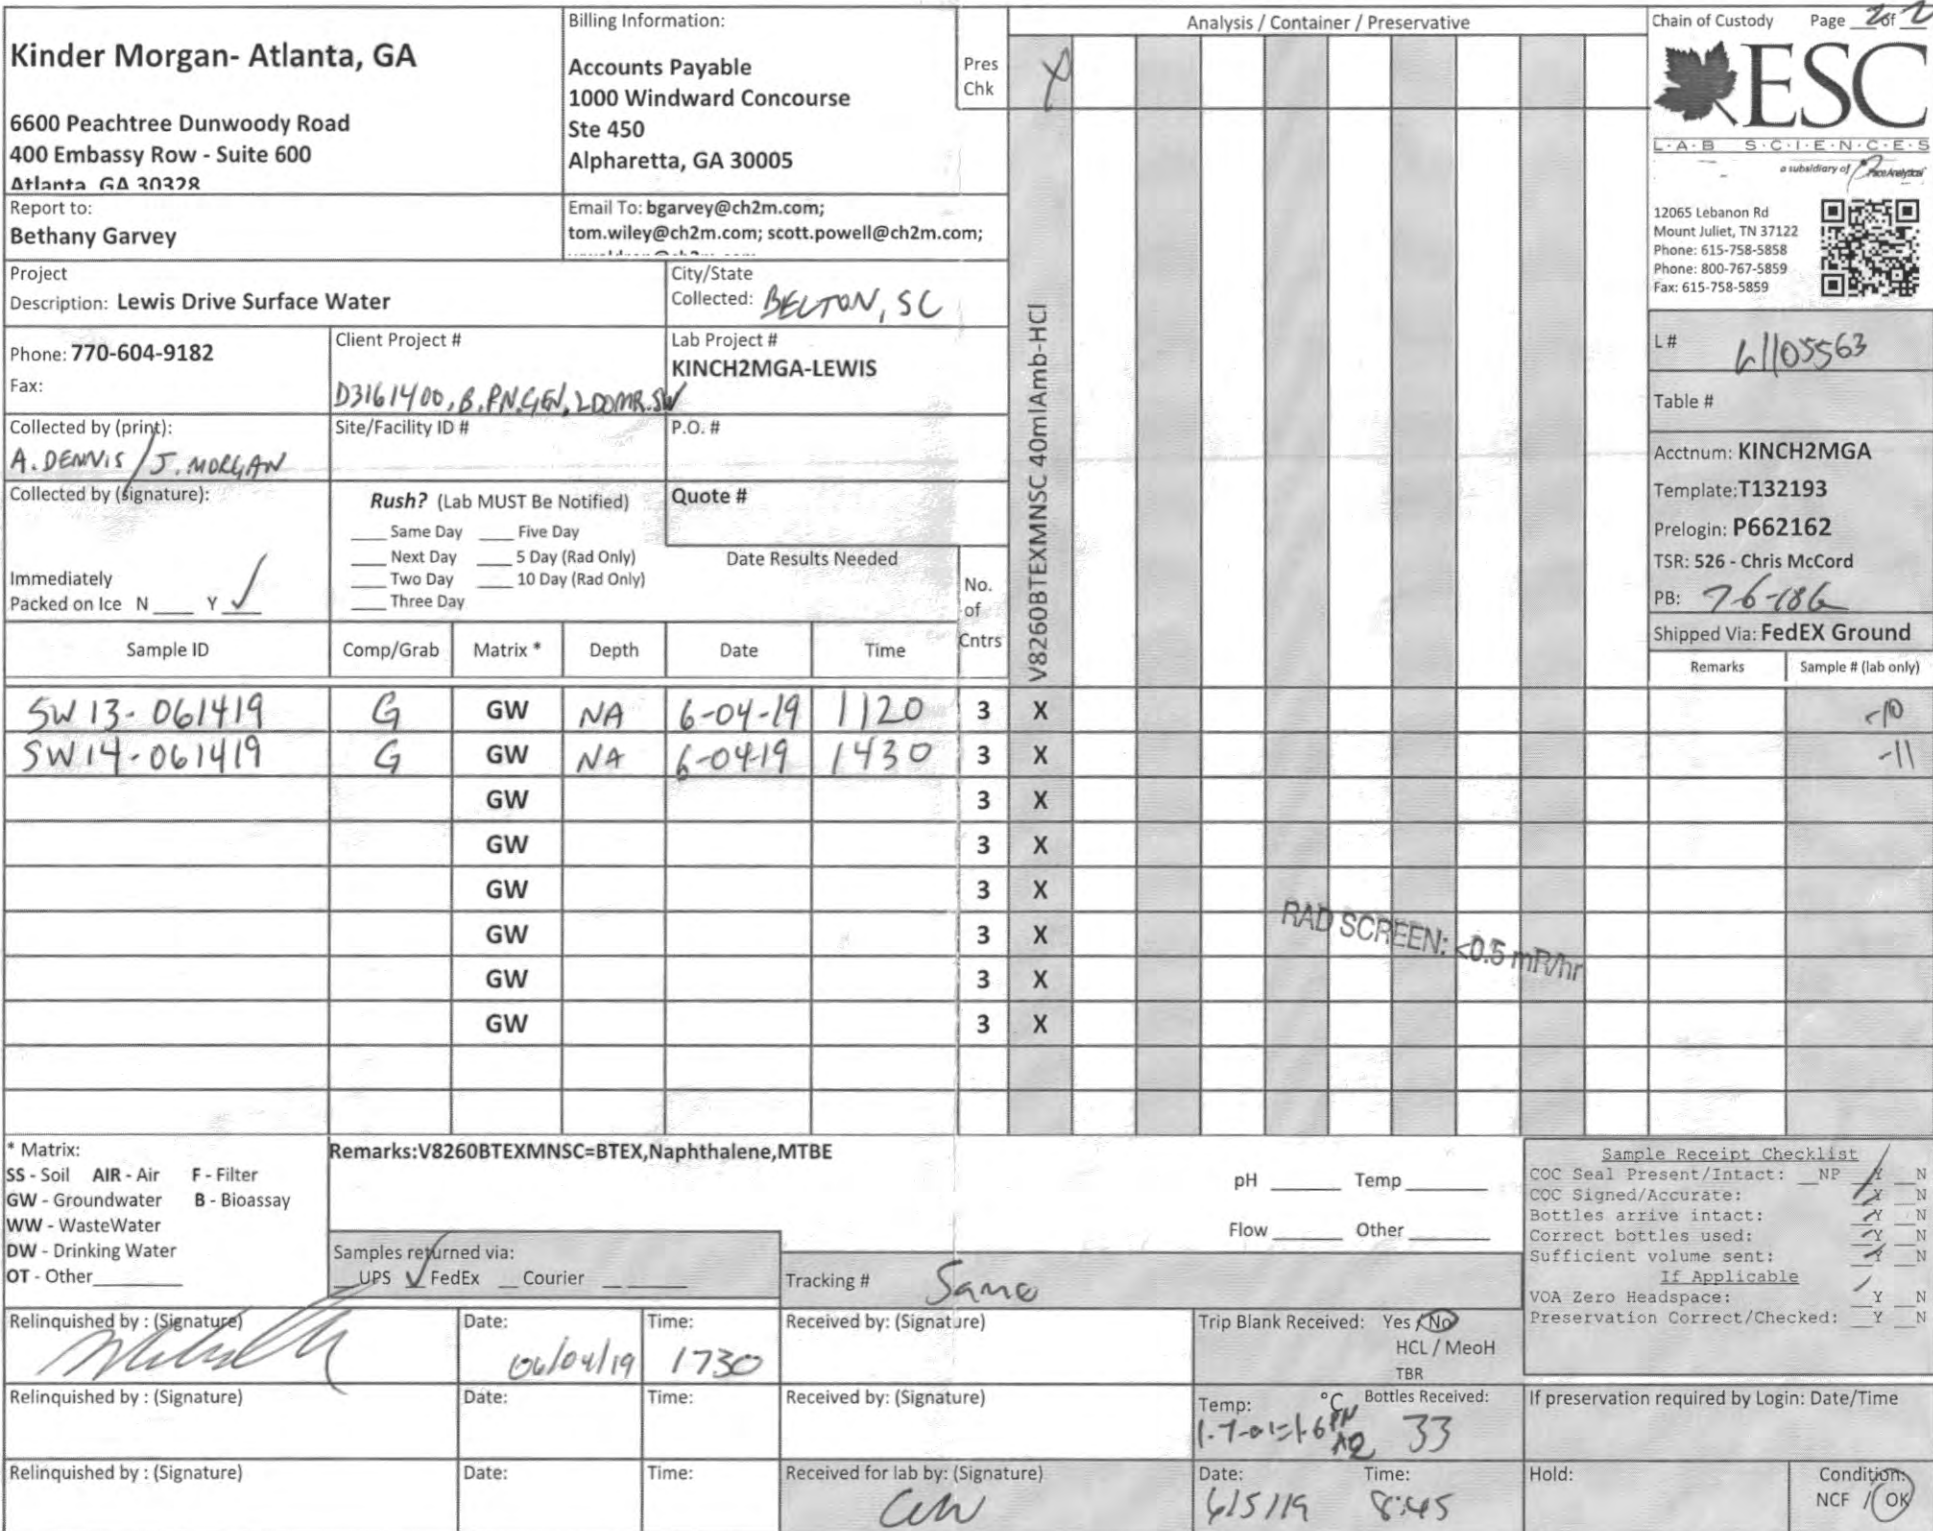 Kinder Morgan- Atlanta, GA
6600 Peachtree Dunwoody Road
400 Embassy Row - Suite 600
Atlanta, GA 30328
Billing Information:
Accounts Payable
1000 Windward Concourse
Ste 450
Alpharetta, GA 30005
Pres
Chk
Analysis / Container / Preservative
Chain of Custody Page 2 of 2
ESC
L·A·B S·C·I·E·N·C·E·S
a subsidiary of Pace Analytical
12065 Lebanon Rd
Mount Juliet, TN 37122
Phone: 615-758-5858
Phone: 800-767-5859
Fax: 615-758-5859
Report to:
Bethany Garvey
Email To: bgarvey@ch2m.com;
tom.wiley@ch2m.com; scott.powell@ch2m.com;
Project
Description: Lewis Drive Surface Water
City/State
Collected: BELTON, SC
Phone: 770-604-9182
Fax:
Client Project #
D3161400.B.PN.GEN.LDOMR.SW
Lab Project #
KINCH2MGA-LEWIS
Collected by (print):
A. DENNIS / J. MORGAN
Site/Facility ID #
P.O. #
Collected by (signature):
Rush? (Lab MUST Be Notified)
___ Same Day ___ Five Day
___ Next Day ___ 5 Day (Rad Only)
___ Two Day ___ 10 Day (Rad Only)
___ Three Day
Quote #
Date Results Needed
Immediately
Packed on Ice N ___ Y ✓
No.
of
Cntrs
V8260BTEXMNSC 40mlAmb-HCl
L# L1105563
Table #
Acctnum: KINCH2MGA
Template: T132193
Prelogin: P662162
TSR: 526 - Chris McCord
PB:
Shipped Via: FedEX Ground
Sample ID Comp/Grab Matrix * Depth Date Time Remarks Sample # (lab only)
SW13-061419 G GW NA 6-04-19 1120 3 X -10
SW14-061419 G GW NA 6-04-19 1430 3 X -11
GW 3 X
GW 3 X
GW 3 X
GW 3 X
GW 3 X
GW 3 X
RAD SCREEN: <0.5 mR/hr
* Matrix:
SS - Soil AIR - Air F - Filter
GW - Groundwater B - Bioassay
WW - WasteWater
DW - Drinking Water
OT - Other
Remarks:V8260BTEXMNSC=BTEX,Naphthalene,MTBE
pH ___ Temp ___
Flow ___ Other ___
Samples returned via:
__ UPS ✓ FedEx __ Courier __
Tracking # Same
Sample Receipt Checklist
COC Seal Present/Intact: __NP __Y __N
COC Signed/Accurate: __Y __N
Bottles arrive intact: __Y __N
Correct bottles used: __Y __N
Sufficient volume sent: __Y __N
If Applicable
VOA Zero Headspace: __Y __N
Preservation Correct/Checked: __Y __N
Relinquished by : (Signature)
Date: 06/04/19
Time: 1730
Received by: (Signature)
Trip Blank Received: Yes / No
HCL / MeoH
TBR
Relinquished by : (Signature)
Date:
Time:
Received by: (Signature)
Temp: °C
Bottles Received:
33
If preservation required by Login: Date/Time
Relinquished by : (Signature)
Date:
Time:
Received for lab by: (Signature)
Date: 6/5/19
Time: 8:45
Hold:
Condition:
NCF / OK